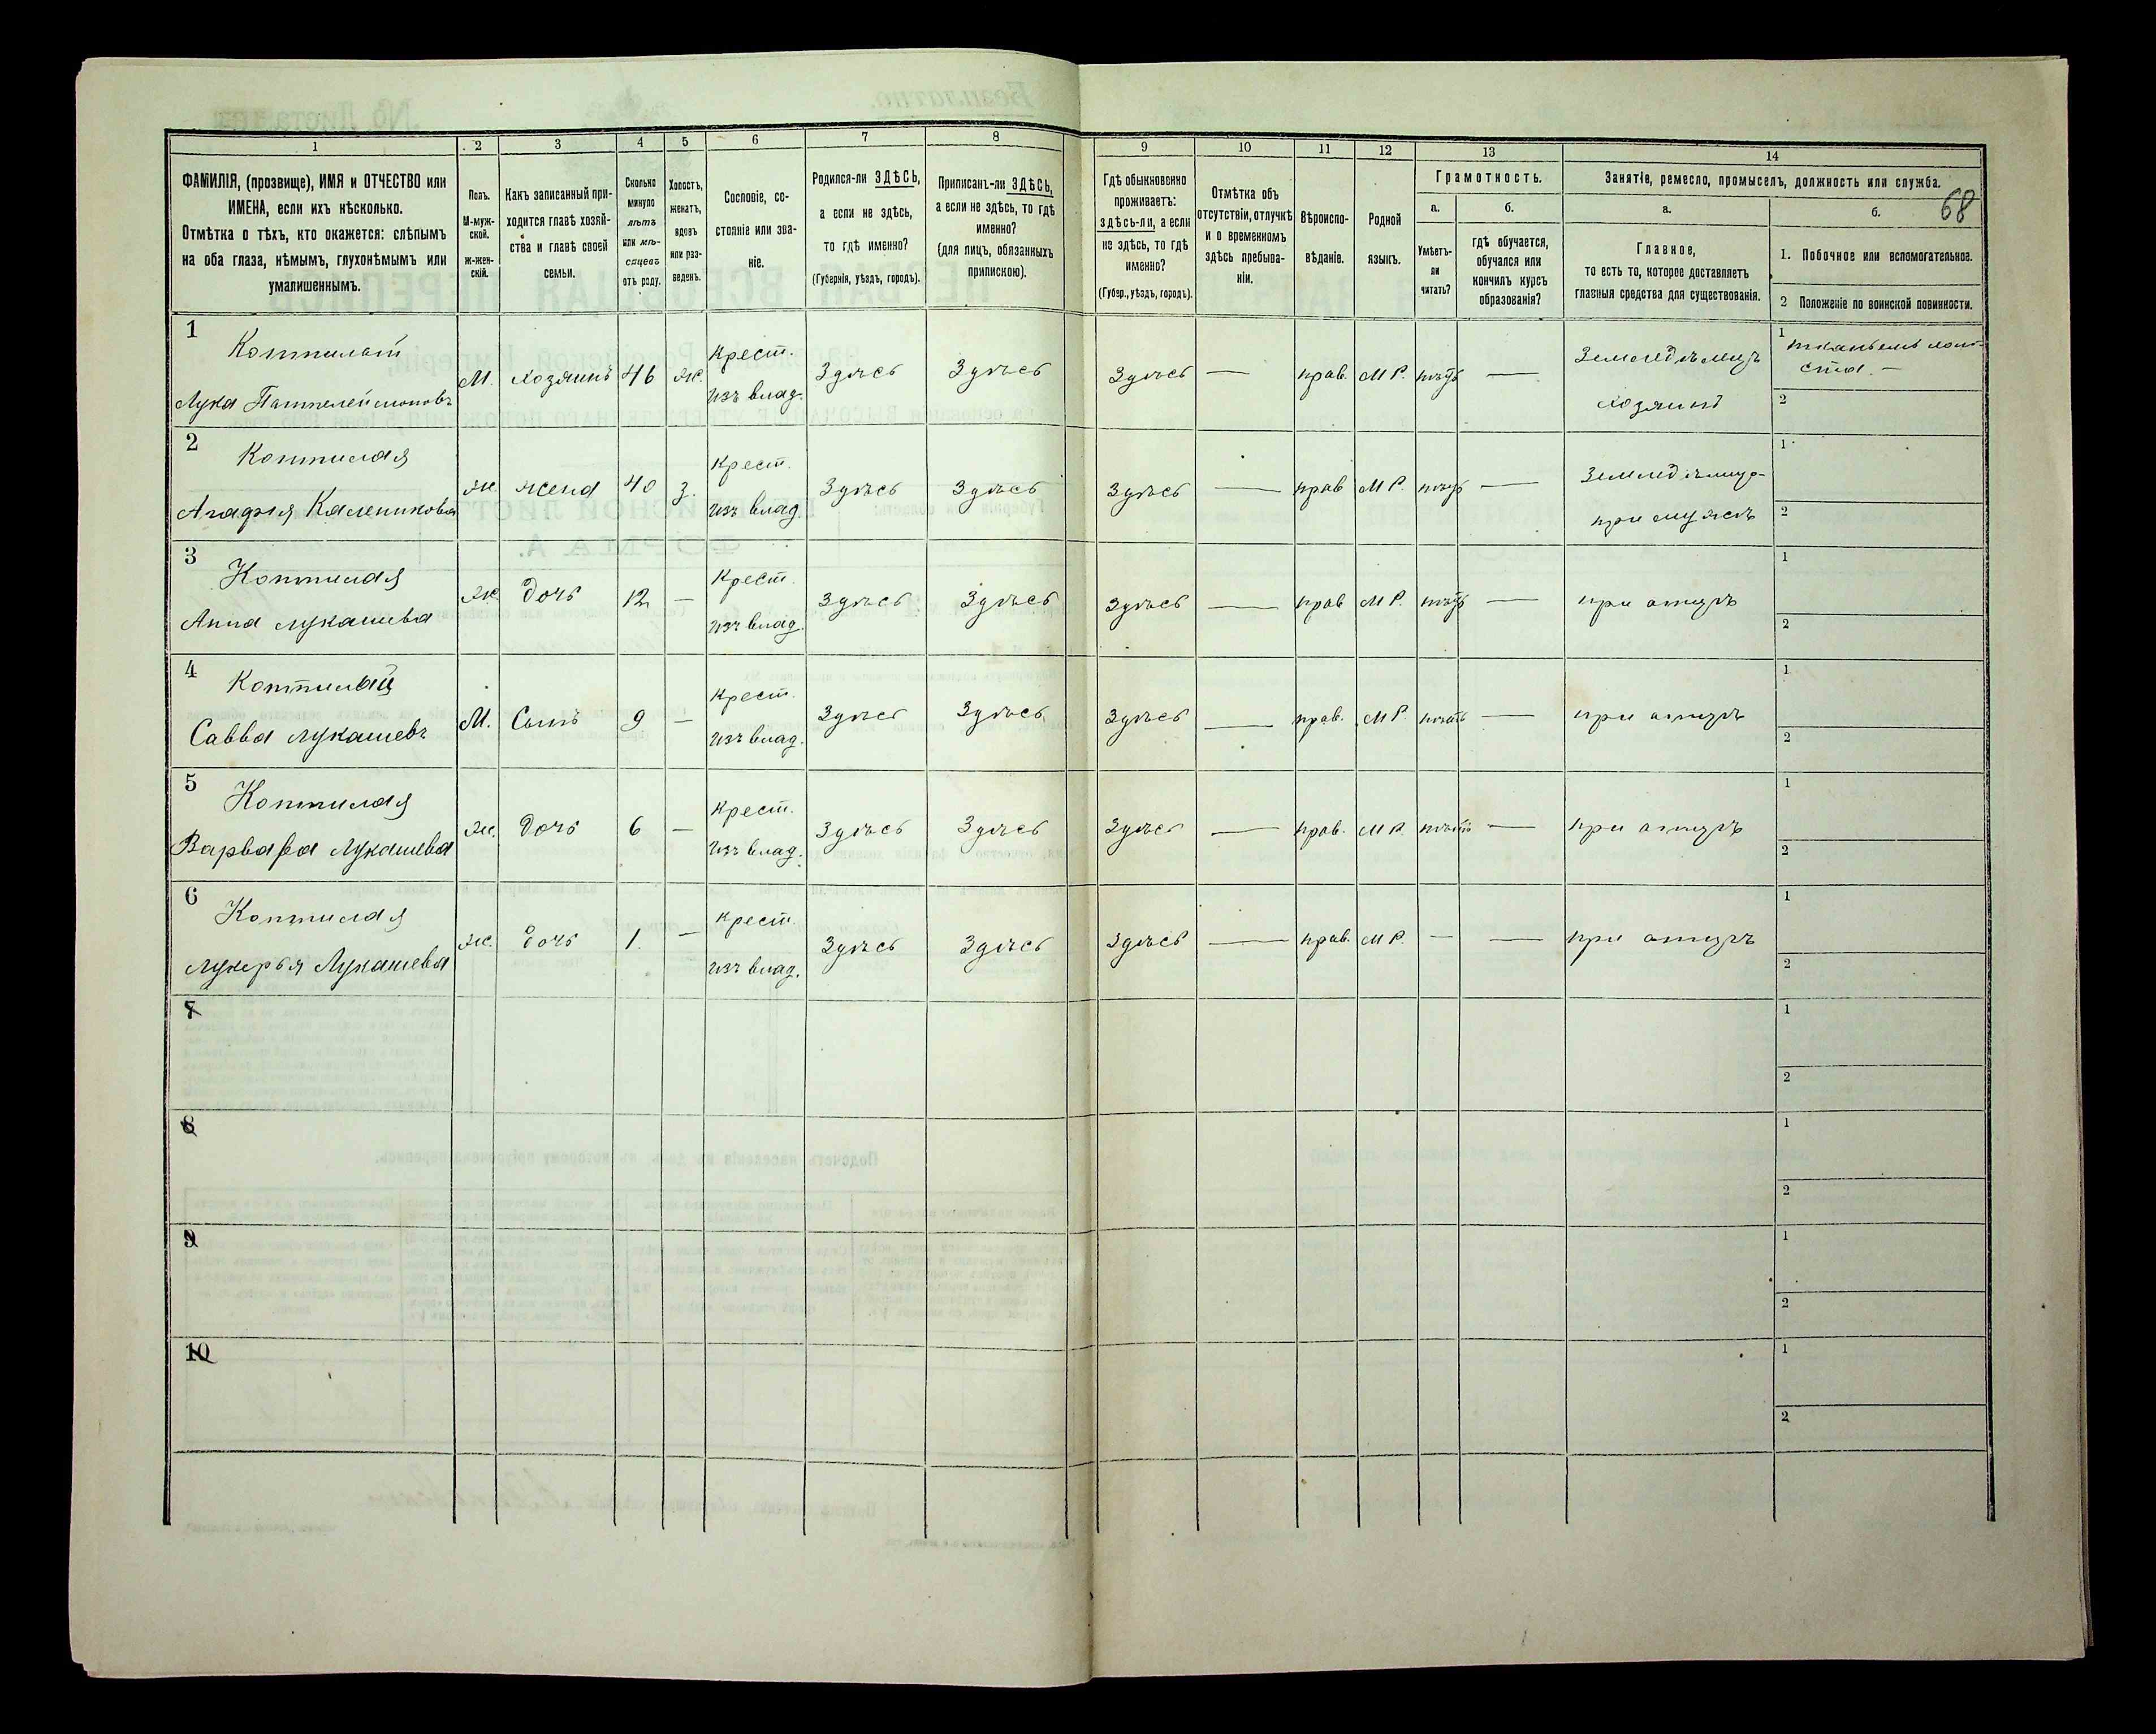 68
1 2 3 4 5 6 7 8 9 10 11 12 13 14
ФАМИЛІЯ, (прозвище), ИМЯ и ОТЧЕСТВО или
ИМЕНА, если ихъ нѣсколько.
Отмѣтка о тѣхъ, кто окажется: слѣпымъ
на оба глаза, нѣмымъ, глухонѣмымъ или
умалишеннымъ.
Полъ.
М-муж-
ской.
ж-жен-
скій.
Какъ записанный при-
ходится главѣ хозяй-
ства и главѣ своей
семьи.
Сколько
минуло
лѣтъ
или мѣ-
сяцевъ
отъ роду.
Холостъ,
женатъ,
вдовъ
или раз-
веденъ.
Сословіе, со-
стояніе или зва-
ніе.
Родился-ли ЗДѢСЬ,
а если не здѣсь,
то гдѣ именно?
(Губернія, уѣздъ, городъ).
Приписанъ-ли ЗДѢСЬ,
а если не здѣсь, то гдѣ
именно?
(для лицъ, обязанныхъ
припискою).
Гдѣ обыкновенно
проживаетъ:
здѣсь-ли, а если
не здѣсь, то гдѣ
именно?
(Губер., уѣздъ, городъ).
Отмѣтка объ
отсутствіи, отлучкѣ
и о временномъ
здѣсь пребыва-
ніи.
Вѣроиспо-
вѣданіе.
Родной
языкъ.
Грамотность.
а.
Умѣетъ-
ли
читать?
б.
гдѣ обучается,
обучался или
кончилъ курсъ
образованія?
Занятіе, ремесло, промыселъ, должность или служба.
а.
Главное,
то есть то, которое доставляетъ
главныя средства для существованія.
б.
1. Побочное или вспомогательное.
2 Положеніе по воинской повинности.
1
Лука Пантелеймоновъ
М. хозяинъ 46 ж.
крест.
изъ влад.
здѣсь здѣсь здѣсь — прав. МР. нѣтъ —
земледѣлецъ
хозяинъ
1
2
2
Агафія Калениковна
ж. жена 40 з.
крест.
изъ влад.
здѣсь здѣсь здѣсь — прав МР. нѣтъ —
при мужѣ
1
2
3
Анна Лукашева
ж. дочь 12 —
крест.
изъ влад.
здѣсь здѣсь здѣсь — прав МР. нѣтъ — при отцѣ
1
2
4
Савва Лукашевъ
М. Сынъ 9 —
крест.
изъ влад.
здѣсь здѣсь здѣсь — прав. МР. нѣтъ — при отцѣ
1
2
5
Варвара Лукашева
ж. дочь 6 —
крест.
изъ влад.
здѣсь здѣсь здѣсь — прав. МР. нѣтъ — при отцѣ
1
2
6
Лукерья Лукашева
ж. дочь 1. —
крест.
изъ влад.
здѣсь здѣсь здѣсь — прав. МР. — — при отцѣ
1
2
7
1
2
8
1
2
9
1
2
10
1
2